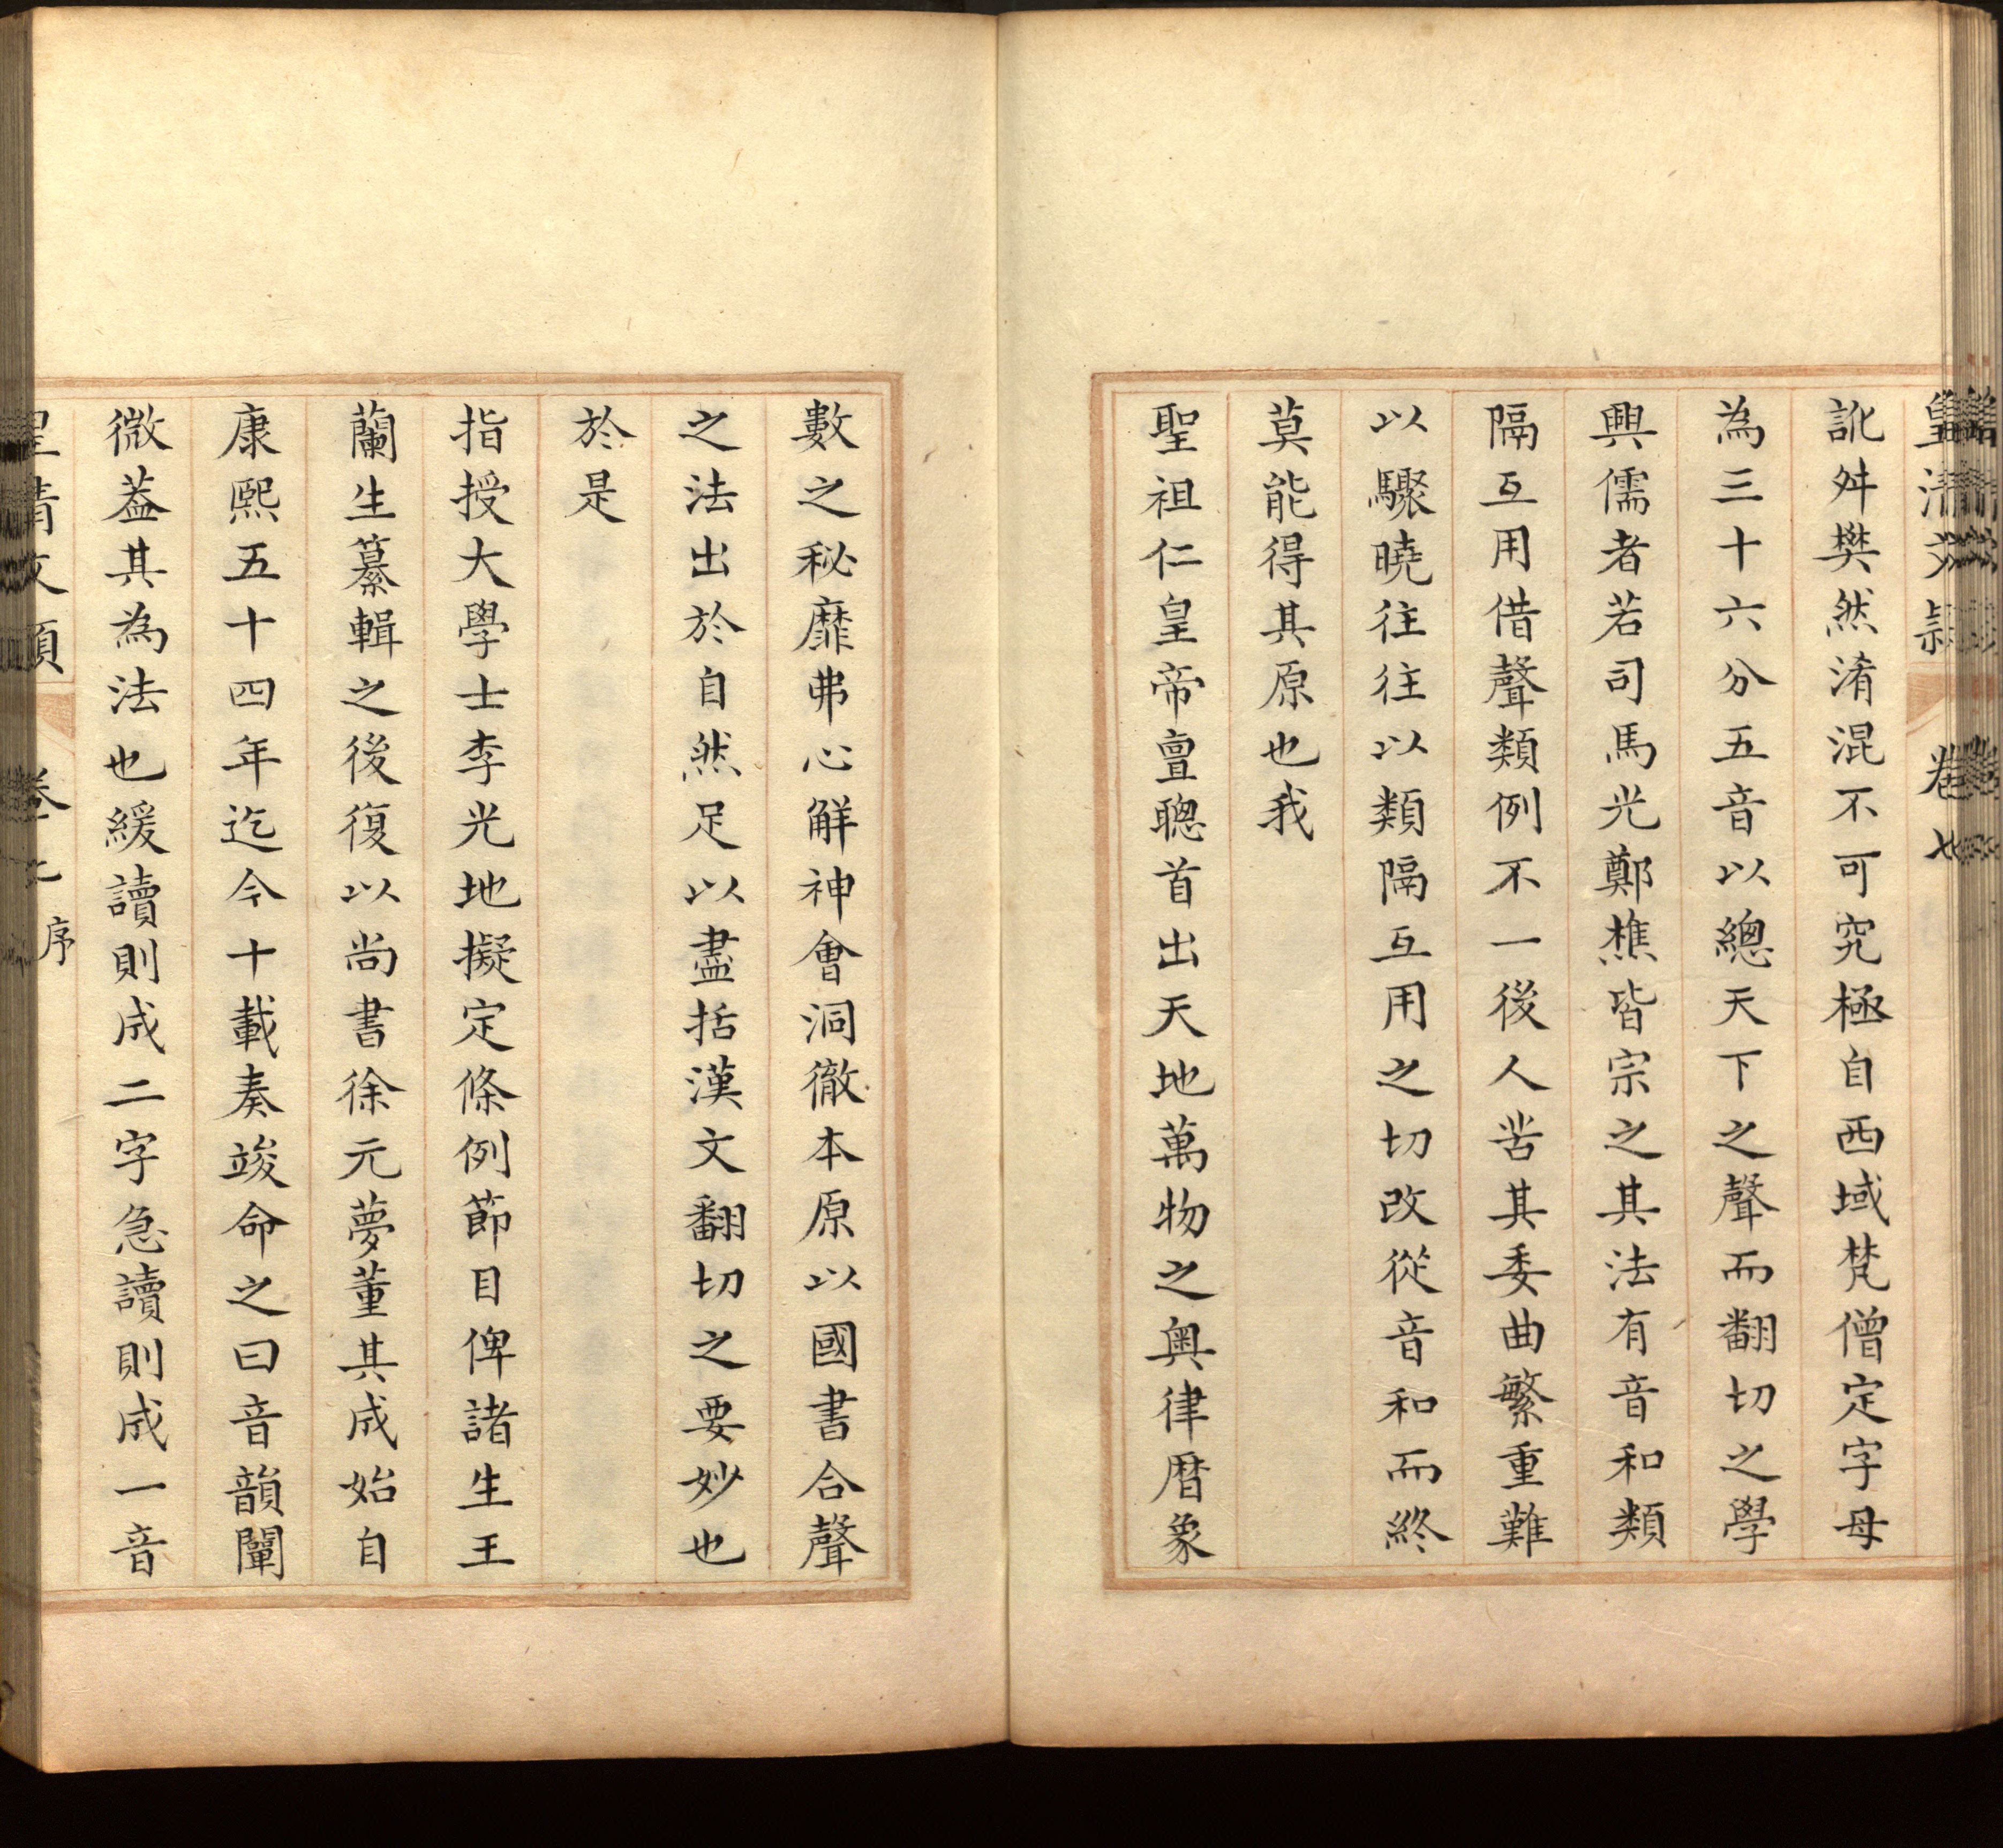 皇清文穎 卷七
訛舛樊然淆混不可究極自西域梵僧定字母
為三十六分五音以總天下之聲而翻切之學
興儒者若司馬光鄭樵皆宗之其法有音和類
隔互用借聲類例不一後人苦其委曲繁重難
以驟曉往往以類隔互用之切改從音和而終
莫能得其原也我
聖祖仁皇帝亶聰首出天地萬物之奧律曆象
數之秘靡弗心解神會洞徹本原以國書合聲
之法出於自然足以盡括漢文翻切之要妙也
於是
指授大學士李光地擬定條例節目俾諸生王
蘭生纂輯之後復以尚書徐元夢董其成始自
康熙五十四年迄今十載奏竣命之曰音韻闡
微葢其為法也緩讀則成二字急讀則成一音
皇清文穎 卷七 序